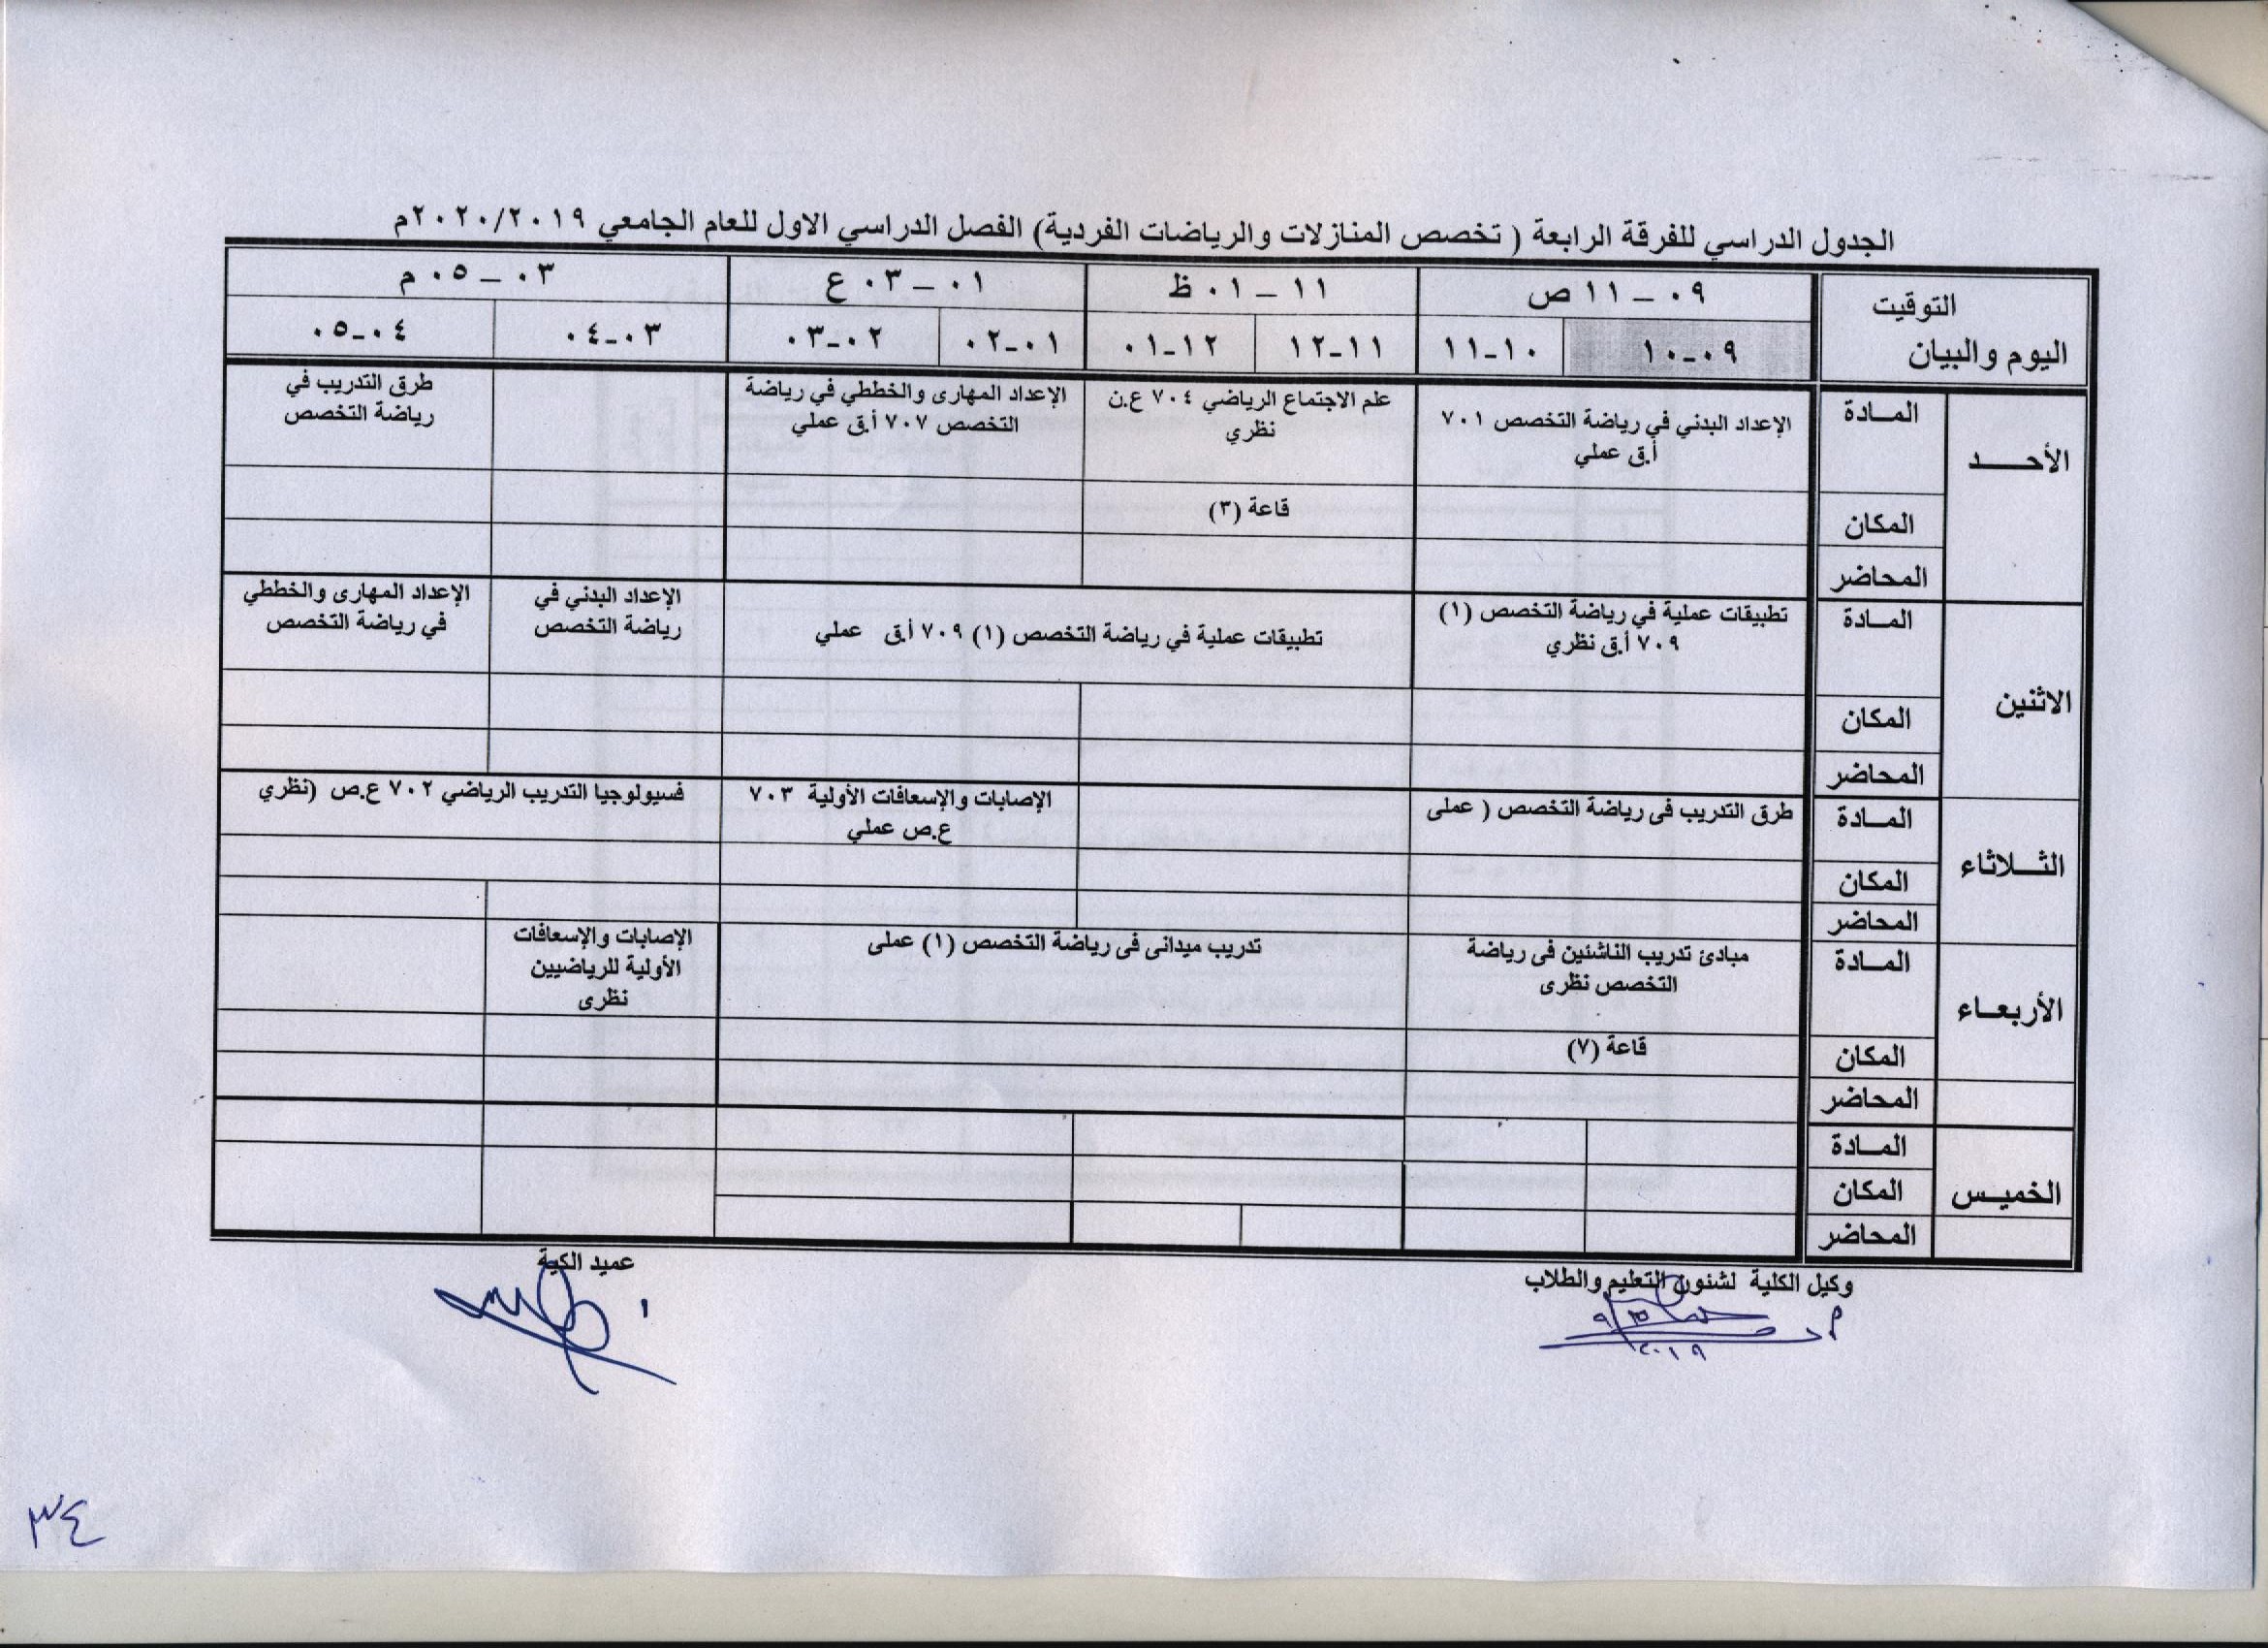 الجدول الدراسي للفرقة الرابعة ( تخصص المنازلات والرياضات الفردية) الفصل الدراسي الاول للعام الجامعي ٢٠٢٠/٢٠١٩م
التوقيت
اليوم والبيان
٠٩ – ١١ ص
١١ – ٠١ ظ
٠١ – ٠٣ ع
٠٣ – ٠٥ م
٠٩-١٠
١٠-١١
١١-١٢
١٢-٠١
٠١-٠٢
٠٢-٠٣
٠٣-٠٤
٠٤-٠٥
الأحـــد
المــادة
الإعداد البدني في رياضة التخصص ٧٠١
أ.ق عملي
علم الاجتماع الرياضي ٧٠٤ ع.ن
نظري
الإعداد المهارى والخططي في رياضة
التخصص ٧٠٧ أ.ق عملي
طرق التدريب في
رياضة التخصص
المكان
قاعة (٣)
المحاضر
الاثنين
المــادة
تطبيقات عملية في رياضة التخصص (١)
٧٠٩ أ.ق نظري
تطبيقات عملية في رياضة التخصص (١) ٧٠٩ أ.ق عملي
الإعداد البدني في
رياضة التخصص
الإعداد المهارى والخططي
في رياضة التخصص
المكان
المحاضر
الثــلاثاء
المــادة
طرق التدريب فى رياضة التخصص ( عملى
الإصابات والإسعافات الأولية ٧٠٣
ع.ص عملي
فسيولوجيا التدريب الرياضي ٧٠٢ ع.ص (نظري
المكان
المحاضر
الأربعــاء
المــادة
مبادئ تدريب الناشئين فى رياضة
التخصص نظرى
تدريب ميدانى فى رياضة التخصص (١) عملى
الإصابات والإسعافات
الأولية للرياضيين
نظرى
المكان
قاعة (٧)
المحاضر
الخميــس
المــادة
المكان
المحاضر
وكيل الكلية لشئون التعليم والطلاب
عميد الكية
٢٠١٩
٣٤